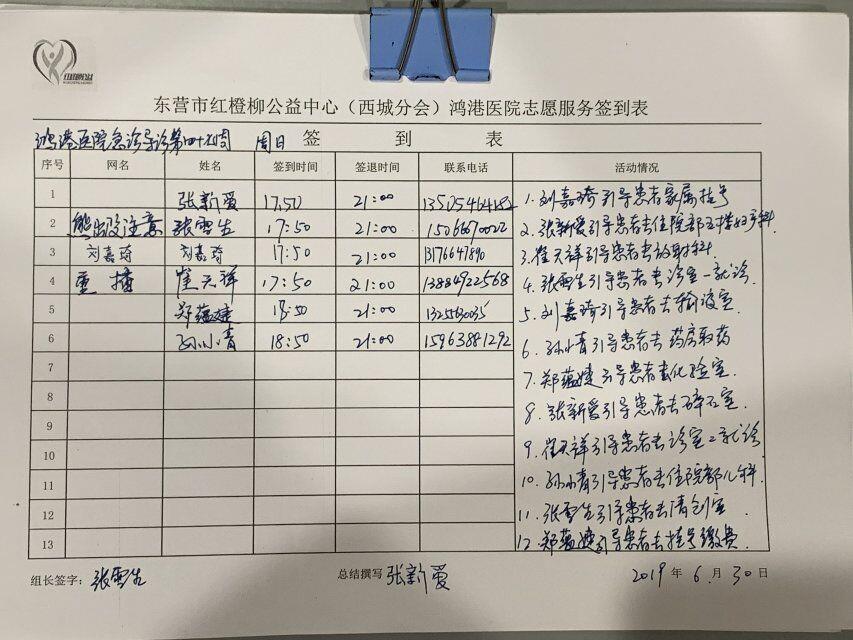 东营市红橙柳公益中心（西城分会）鸿港医院志愿服务签到表
鸿港医院急诊导诊第四十六周 周日 签 到 表
序号 网名 姓名 签到时间 签退时间 联系电话 活动情况
1 张新爱 17:50 21:00 13505464182
2 熊出没注意 张雪生 17:50 21:00 15066690022
3 刘嘉琦 刘嘉琦 17:50 21:00 13176647890
4 重楠 崔天祥 17:50 21:00 13884922568
5 郑蕴婕 18:50 21:00
6 孙小青 18:50 21:00 15963881292
7
8
9
10
11
12
13
1. 刘嘉琦引导患者家属挂号
2. 张新爱引导患者去住院部五楼妇产科
3. 崔天祥引导患者去放射科
4. 张雪生引导患者去诊室一就诊
5. 刘嘉琦引导患者去输液室
6. 孙小青引导患者去药房取药
7. 郑蕴婕引导患者去化验室
8. 张新爱引导患者去碎石室
9. 崔天祥引导患者去诊室二就诊
10. 孙小青引导患者去住院部儿科
11. 张雪生引导患者去清创室
12. 郑蕴婕引导患者去挂号缴费
组长签字：张雪生 总结撰写 张新爱 2019 年 6 月 30 日